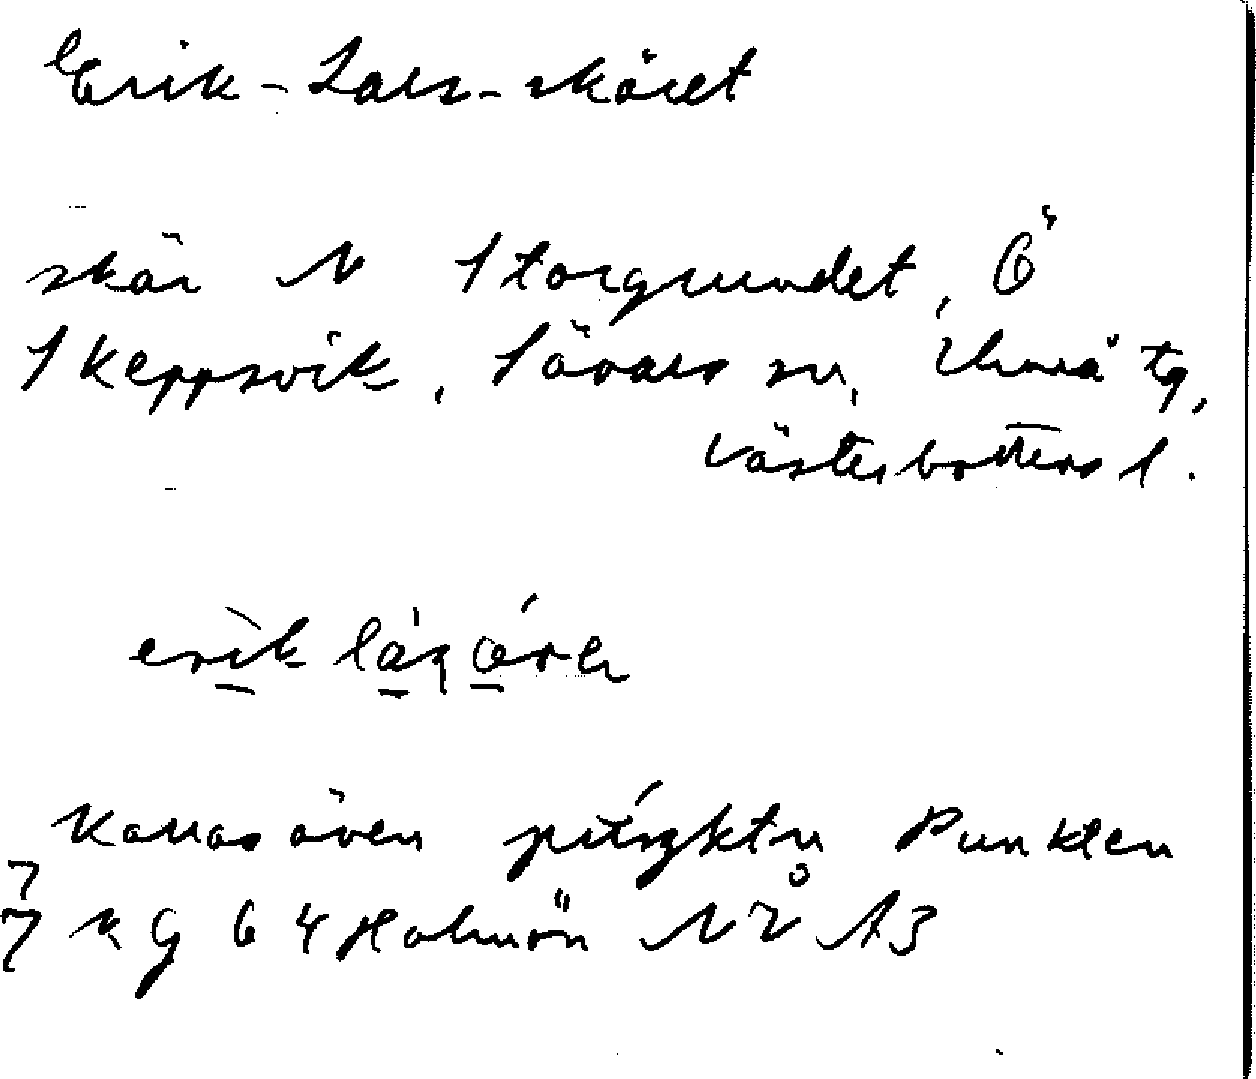 Erik-Lars-skäret
skär N Storgrundet, Ö
Skeppsvik, Sävars sn, Umeå tg,
Västerbottens l.
erik
Kallas även Punkten
KG 64 Holmön NV A3